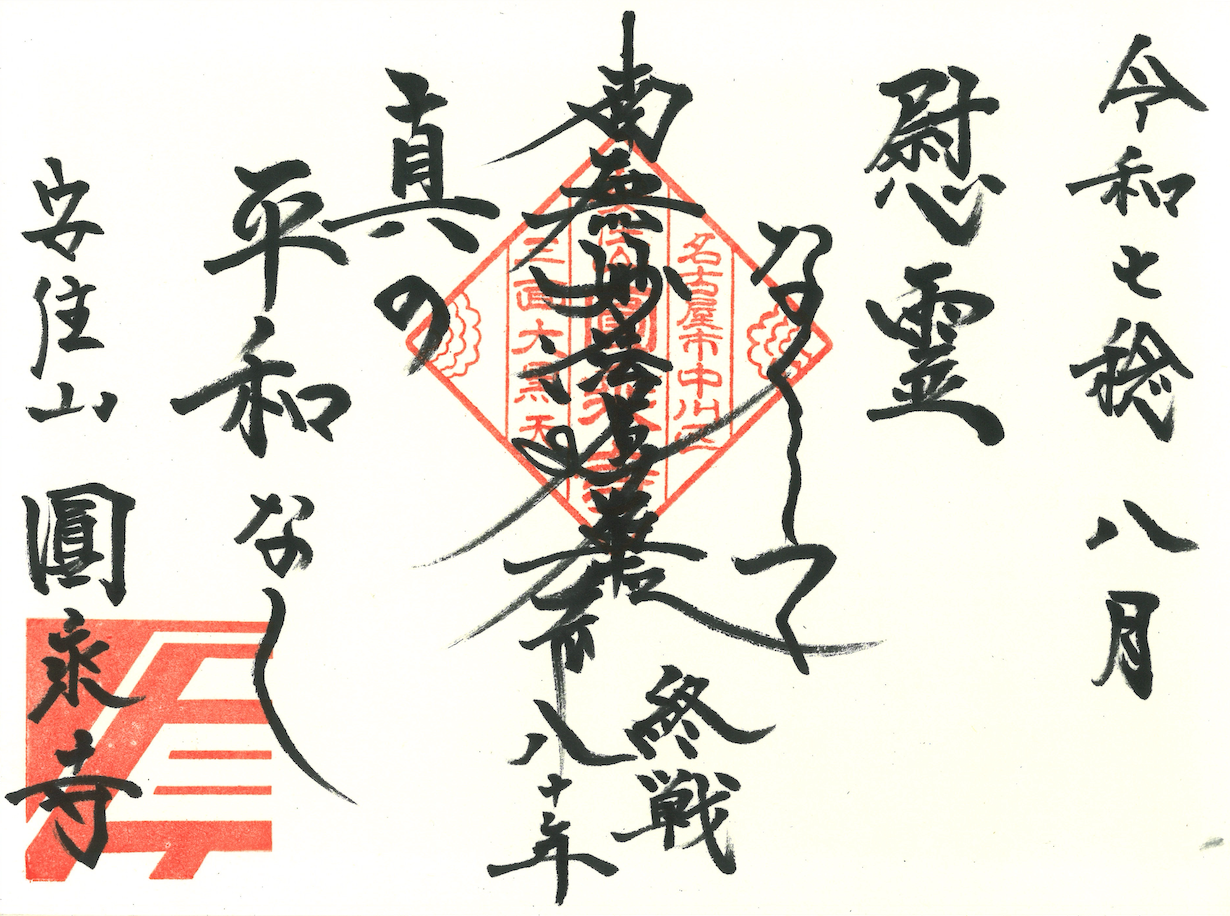 令和七稔 八月
慰霊
なくして
南無妙法蓮華経
終戦
八十年
真の
平和なし
安住山 圓泉寺
名古屋市中川区
三面大黒天